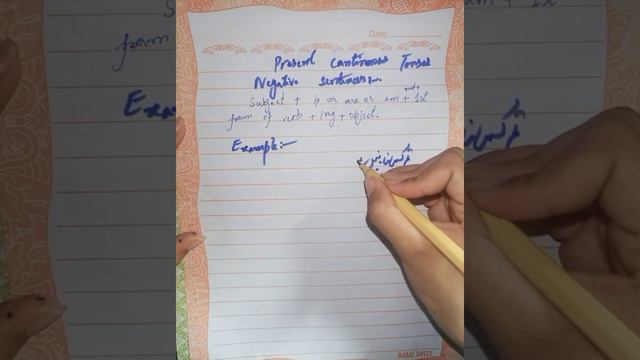 Date
Present Continuous Tense
Negative sentences:-
Subject + is or are or am + not + 1st
form of verb + ing + object.
Example:-
ہم